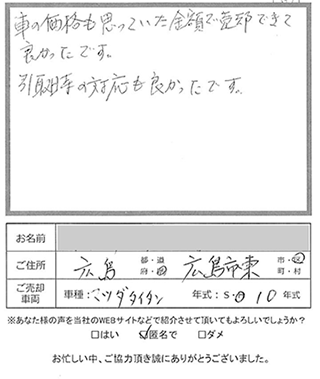 車の価格も思っていた金額で売却できて
良かったです。
引取時の対応も良かったです。
お名前
ご住所 広島 都・道 府・県 広島市東 市・区 町・村
ご売却車両 車種：マツダタイタン 年式：S・H 10 年式
※あなた様の声を当社のWEBサイトなどで紹介させて頂いてもよろしいでしょうか？
□はい ☑匿名で □ダメ
お忙しい中、ご協力頂き誠にありがとうございました。